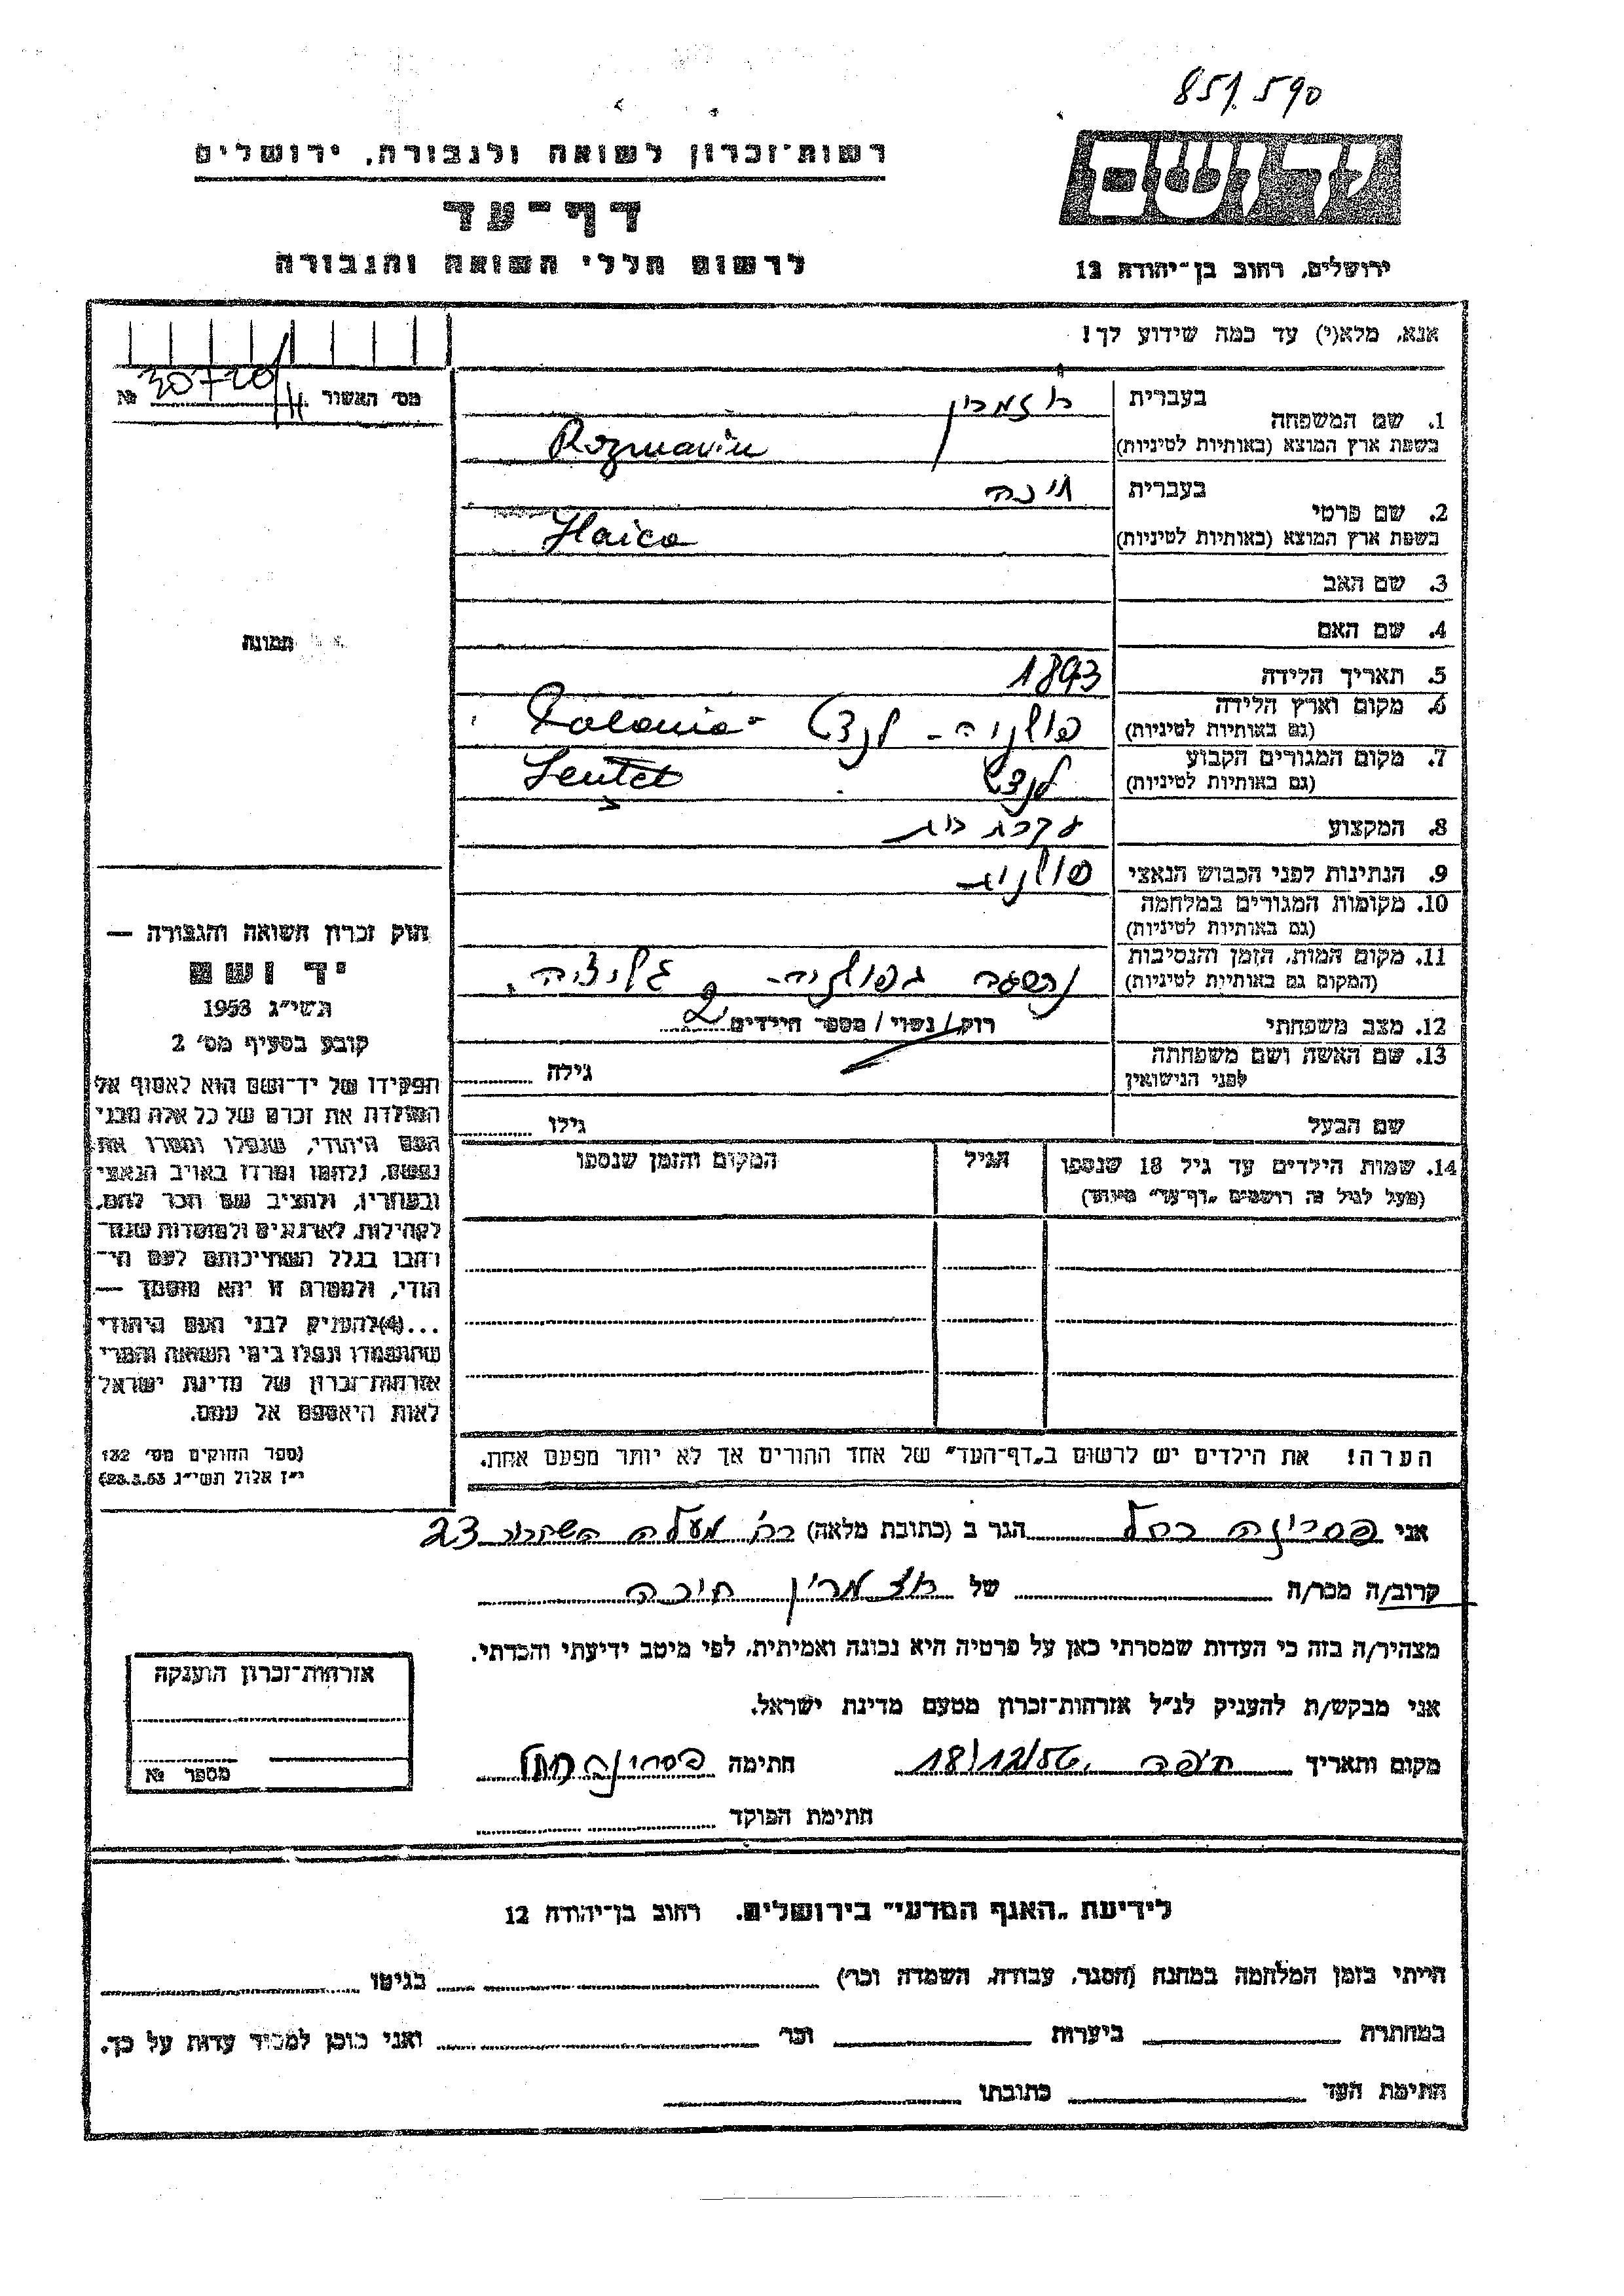 851.590
רשות־זכרון לשואה ולגבורה, ירושלים
יד ושם
דף־עד
לרשום חללי השואה והגבורה
ירושלים, רחוב בן־יהודה 12
אנא, מלא(י) עד כמה שידוע לך!
מס׳ האשור №
1. שם המשפחה
בעברית רוזמרין
בשפת ארץ המוצא (באותיות לטיניות) Rozmarin
2. שם פרטי
בעברית חיכה
בשפת ארץ המוצא (באותיות לטיניות) Haica
3. שם האב
4. שם האם
תמונה
5. תאריך הלידה 1893
6. מקום וארץ הלידה
(גם באותיות לטיניות) פולניה - Polonia
7. מקום המגורים הקבוע
(גם באותיות לטיניות)
8. המקצוע עקרת בית
9. הנתינות לפני הכבוש הנאצי פולנית
10. מקומות המגורים במלחמה
(גם באותיות לטיניות)
11. מקום המות, הזמן והנסיבות
(המקום גם באותיות לטיניות) בפולניה - גליציה.
12. מצב משפחתי רוק/נשוי/מספר הילדים 2
13. שם האשה ושם משפחתה
לפני הנישואין גילה
שם הבעל גילו
14. שמות הילדים עד גיל 18 שנספו הגיל המקום והזמן שנספו
(מעל לגיל זה רושמים „דף־עד” מיוחד)
חוק זכרון השואה והגבורה —
יד ושם
תשי״ג 1953
קובע בסעיף מס׳ 2
תפקידו של יד־ושם הוא לאסוף אל
המולדת את זכרם של כל אלה מבני
העם היהודי, שנפלו ומסרו את
נפשם, נלחמו ומרדו באויב הנאצי
ובעוזריו, ולהציב שם וזכר להם,
לקהילות, לארגונים ולמוסדות שנח־
רבו בגלל השתייכותם לעם הי־
הודי, ולמטרה זו יהא מוסמך —
...(4)להעניק לבני העם היהודי
שהושמדו ונפלו בימי השואה והמרי
אזרחות־זכרון של מדינת ישראל
לאות היאספם אל עמם.
(ספר החוקים מס׳ 132
י״ז אלול תשי״ג 28.8.53)
הערה! את הילדים יש לרשום ב„דף־העד” של אחד ההורים אך לא יותר מפעם אחת.
אני רחל הגר ב (כתובת מלאה) רח׳ מעלה השחרור 23
קרוב/ה מכר/ה של רוזמרין חיכה
מצהיר/ה בזה כי העדות שמסרתי כאן על פרטיה היא נכונה ואמיתית, לפי מיטב ידיעתי והכרתי.
אני מבקש/ת להעניק לנ״ל אזרחות־זכרון מטעם מדינת ישראל.
מקום ותאריך חיפה 18/12/56 חתימה רחל
חתימת הפוקד
אזרחות־זכרון הוענקה
מספר №
לידיעת „האגף המדעי” בירושלים, רחוב בן־יהודה 12
הייתי בזמן המלחמה במחנה (הסגר, עבודה, השמדה וכו׳) בגיטו
במחתרת ביערות וכו׳ ואני מוכן למסור עדות על כך.
חתימת העד כתובתו